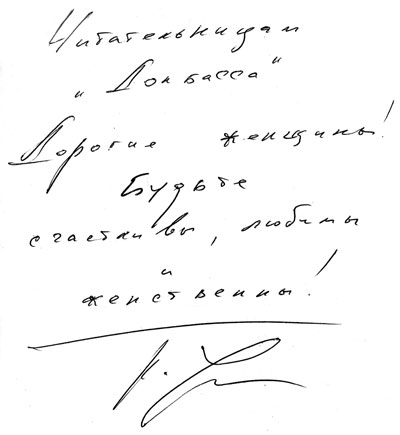 Читательницам
"Донбасса"
Дорогие женщины!
Будьте
счастливы, любимы
и
женственны!